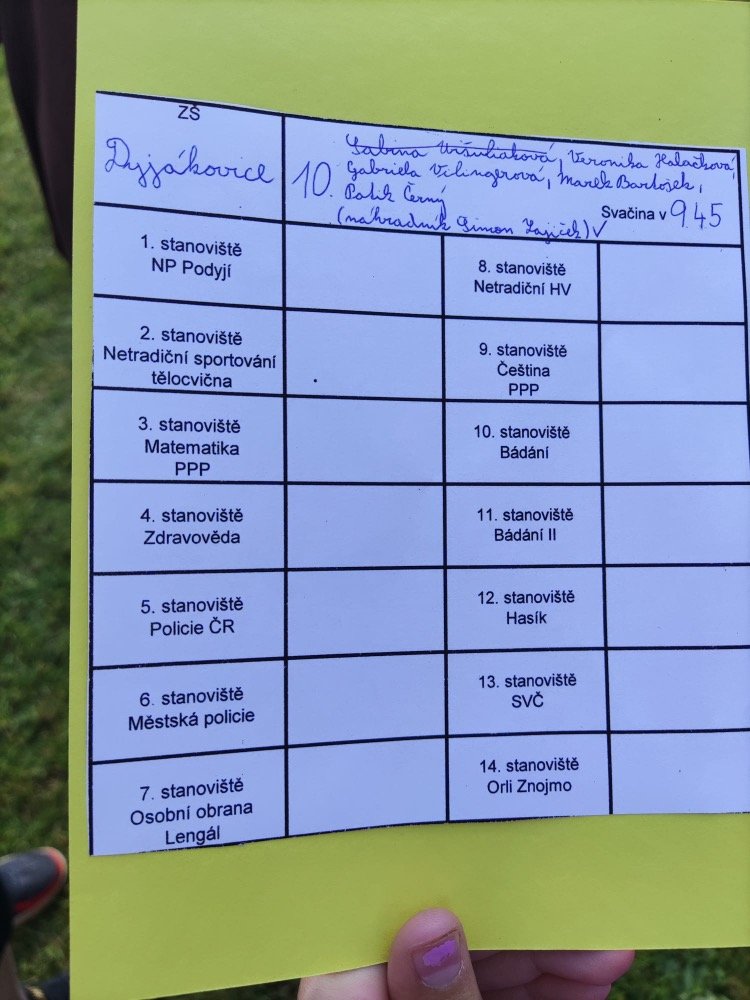 ZŠ
Dyjákovice
10.
Sabina Uršuliaková, Veronika Halačková,
Gabriela Vilingerová, Marek Bartošek,
Patik Černý
(náhradník Simon Zajíček) V
Svačina v 9.45
1. stanoviště
NP Podyjí
8. stanoviště
Netradiční HV
2. stanoviště
Netradiční sportování
tělocvična
9. stanoviště
Čeština
PPP
3. stanoviště
Matematika
PPP
10. stanoviště
Bádání
4. stanoviště
Zdravověda
11. stanoviště
Bádání II
5. stanoviště
Policie ČR
12. stanoviště
Hasík
6. stanoviště
Městská policie
13. stanoviště
SVČ
7. stanoviště
Osobní obrana
Lengál
14. stanoviště
Orli Znojmo